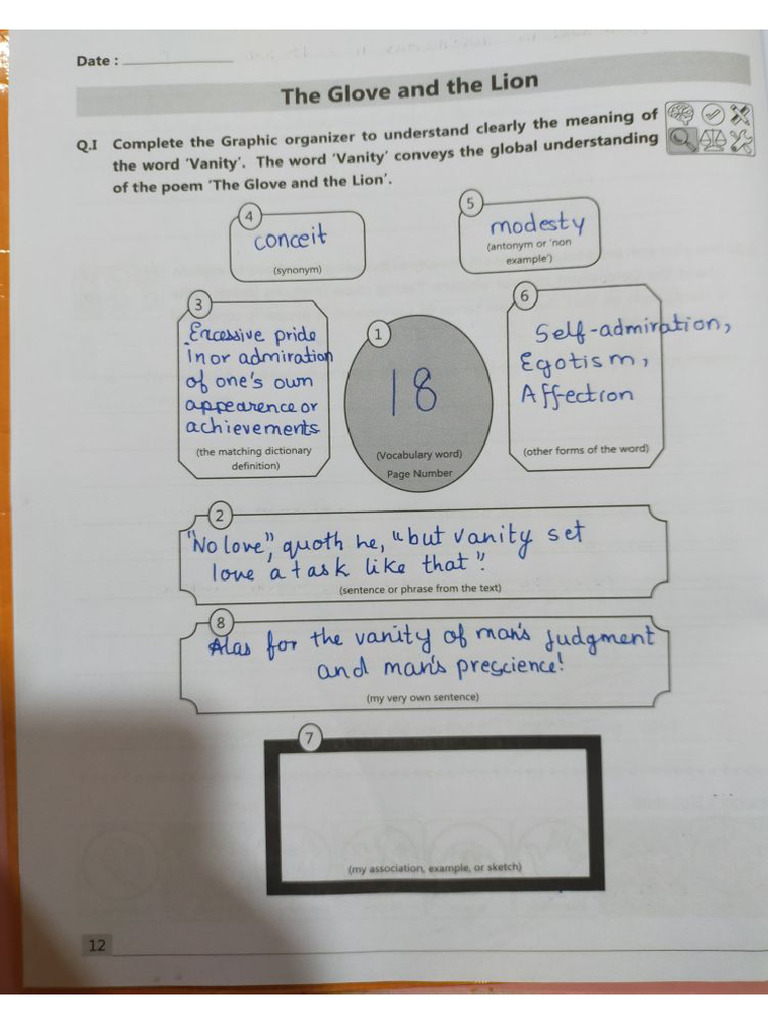 Date :
The Glove and the Lion
Q.I Complete the Graphic organizer to understand clearly the meaning of
the word 'Vanity'. The word 'Vanity' conveys the global understanding
of the poem 'The Glove and the Lion'.
4
conceit
(synonym)
5
modesty
(antonym or 'non
example')
3
Excessive pride
in or admiration
of one's own
appearence or
achievements
(the matching dictionary
definition)
1
18
(Vocabulary word)
Page Number
6
Self-admiration,
Egotism,
Affection
(other forms of the word)
2
"No love", quoth he, "but vanity set
love a task like that".
(sentence or phrase from the text)
8
Alas for the vanity of man's judgment
and man's prescience!
(my very own sentence)
7
(my association, example, or sketch)
12